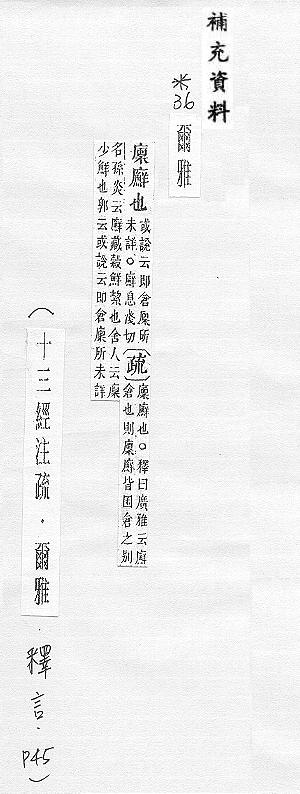 補充資料
※36
爾雅
廩廯也
或說云即倉廩所
未詳。廯息淺切
(疏)
廩廯也。釋曰廣雅云廯
倉也則廩廯皆囷倉之別
名孫炎云廯藏穀鮮絜也舍人云廩
少鮮也郭云或說云即倉廩所未詳
(十三經注疏.爾雅.釋言.P45)